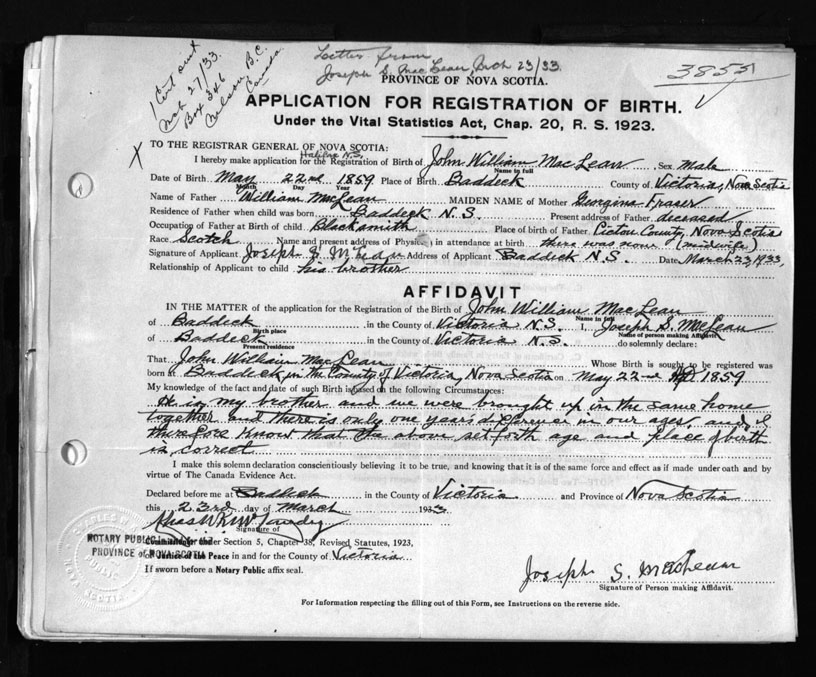 1 Cert sent
Mch 27/33
Box 346
Nelson B.C.
Canada
Letter from
Joseph S. MacLean, Mch 23/33.
3855
PROVINCE OF NOVA SCOTIA.
APPLICATION FOR REGISTRATION OF BIRTH.
Under the Vital Statistics Act, Chap. 20, R. S. 1923.
X TO THE REGISTRAR GENERAL OF NOVA SCOTIA:
Halifax N.S.
I hereby make application for the Registration of Birth of John William MacLean Sex male
Name in full
Date of Birth May 22nd 1859 Place of Birth Baddeck County of Victoria, Nova Scotia
Month Day Year
Name of Father William MacLean MAIDEN NAME of Mother Georgina Fraser
Residence of Father when child was born Baddeck N.S. Present address of Father deceased
Occupation of Father at Birth of child Blacksmith Place of birth of Father Pictou County, Nova Scotia
Race Scotch Name and present address of Physician in attendance at birth there was none (midwife)
Signature of Applicant Joseph S. McLean Address of Applicant Baddeck N.S. Date March 23, 1933,
Relationship of Applicant to child his brother
AFFIDAVIT
IN THE MATTER of the application for the Registration of the Birth of John William MacLean
Name in full
of Baddeck in the County of Victoria N.S. I, Joseph S. MacLean
Birth place Name of person making Affidavit
of Baddeck in the County of Victoria N.S. do solemnly declare:
Present residence
That John William MacLean Whose Birth is sought to be registered was
born at Baddeck in the County of Victoria, Nova Scotia on May 22nd 1859
My knowledge of the fact and date of such Birth is based on the following Circumstances:
He is my brother and we were brought up in the same home
together and there is only one year's difference in our ages, and I
therefore know that the above set forth age and place of birth
is correct
I make this solemn declaration conscientiously believing it to be true, and knowing that it is of the same force and effect as if made under oath and by
virtue of The Canada Evidence Act.
Declared before me at Baddeck in the County of Victoria and Province of Nova Scotia
this 23rd day of March 1933
Signature of
NOTARY PUBLIC in and for the
PROVINCE of NOVA SCOTIA
Commissioner under Section 5, Chapter 38, Revised Statutes, 1923,
or Justice of the Peace in and for the County of Victoria
If sworn before a Notary Public affix seal.
Joseph S. MacLean
Signature of Person making Affidavit.
For Information respecting the filling out of this Form, see Instructions on the reverse side.